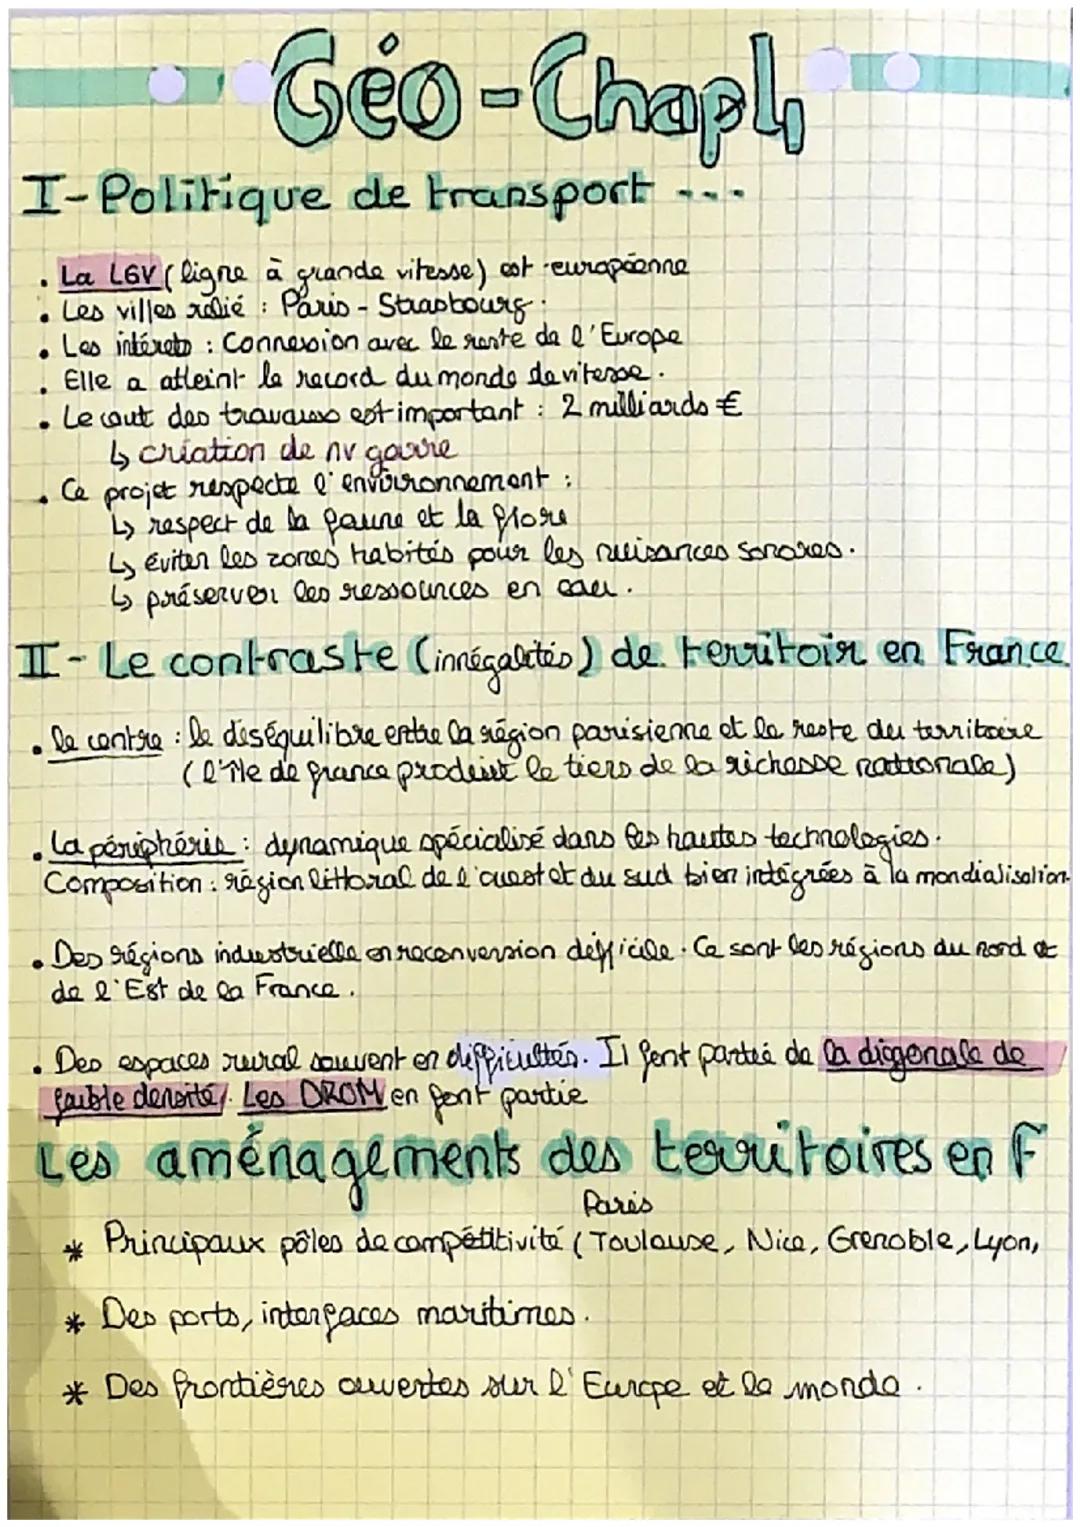 Géo - Chap 4
I - Politique de transport ...
. La LGV ( ligne à grande vitesse) est européenne
. Les villes relié : Paris - Strasbourg.
. Les intérets : Connexion avec le reste de l'Europe
. Elle a atteint le record du monde de vitesse.
. Le cout des travauxs est important : 2 milliards €
↳ création de nv garre
. Ce projet respecte l'environnement :
↳ respect de la faune et la flore
↳ éviter les zones habités pour les nuisances sonores.
↳ préserver les ressources en eau.
II - Le contraste (innégalités) de territoir en France.
. le centre : le deséquilibre entre la région parisienne et le reste du territoire
( l'île de france produit le tiers de la richesse nationale)
. La périphérie : dynamique spécialisé dans les hautes technologies.
Composition : région littoral de l'ouest et du sud bien intégrées à la mondialisation.
. Des régions industrielle en reconversion difficile. Ce sont les régions du nord et
de l'Est de la France.
. Des espaces rural souvent en difficultés. Il font partie de la diagonale de
faible densité. Les DROM en font partie
Les aménagements des territoires en F
Paris
* Principaux pôles de compétitivité ( Toulouse, Nice, Grenoble, Lyon,
* Des ports, interfaces maritimes.
* Des frontières ouvertes sur l'Europe et le monde.